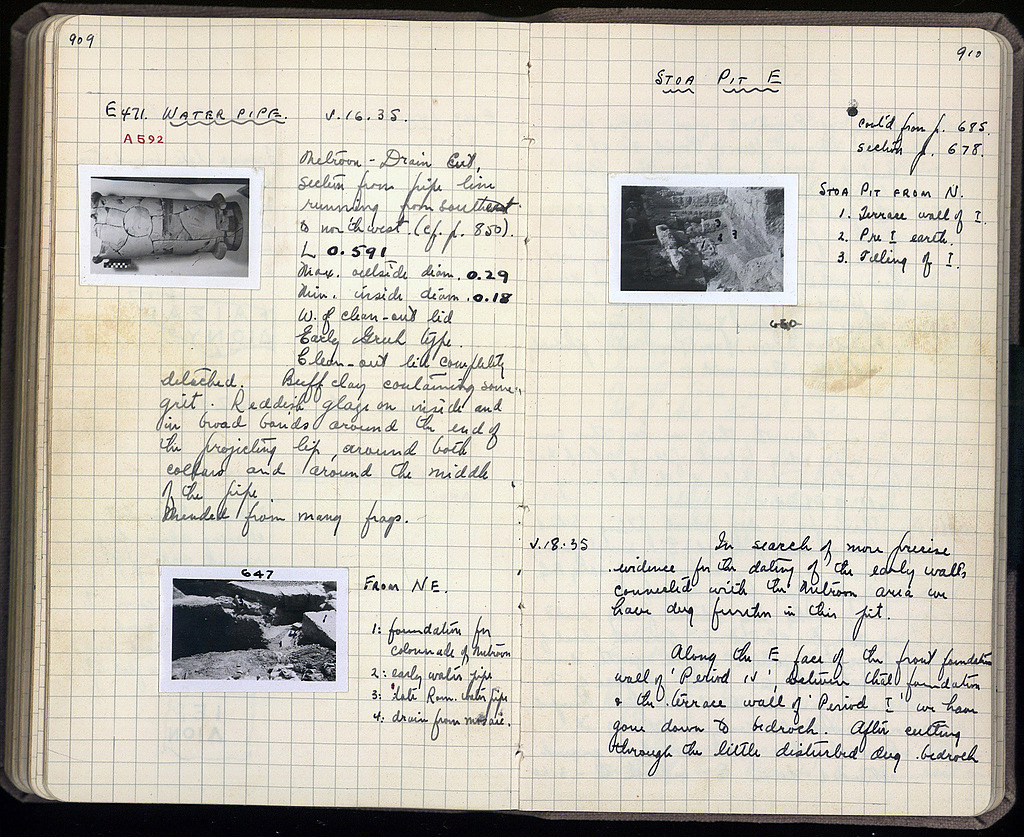 909
E 471. WATER PIPE. V.16.35.
A 592
Metroon - Drain Cut,
section from pipe line
running from southeast
to northwest. (cf. p. 850).
L 0.591
Max. outside diam. 0.29
Min. inside diam. 0.18
W. of clean-out lid
Early Greek type.
Clean-out lid completely
detached. Buff clay containing some
grit. Reddish glaze on inside and
in broad bands around the end of
the projecting lip, around both
collars and around the middle
of the pipe.
Mended from many frags.
647
FROM NE.
1: foundation for
colonnade of Metroon
2: early water pipe
3: late Rom. water pipe
4: drain from mosaic.
910
STOA PIT E
cont'd from p. 685.
section p. 678.
STOA PIT FROM N.
1. Terrace wall of I.
2. Pre I earth.
3. Filling of I.
650
V.18.35 In search of more precise
evidence for the dating of the early walls
connected with the Metroon area we
have dug further in this pit.
Along the E face of the front foundation
wall of 'Period IV', between that foundation
& the terrace wall of 'Period I' we have
gone down to bedrock. After cutting
through the little disturbed dug bedrock